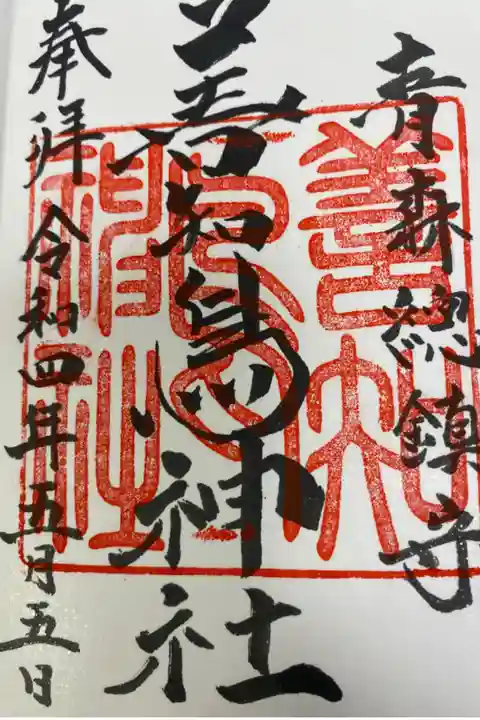 青森總鎮守
善知鳥神社
奉拝 令和四年五月五日
善知鳥神社